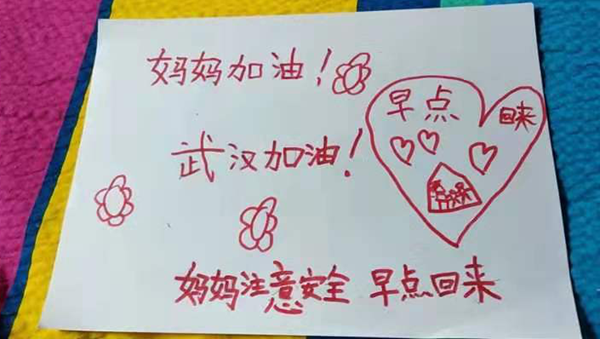 妈妈加油！
早点
回来
武汉加油！
妈妈注意安全 早点回来